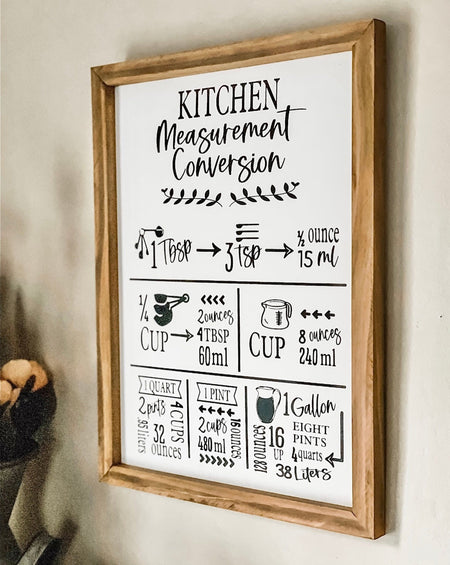 KITCHEN
Measurement
Conversion
1 Tbsp
3 tsp
½ ounce
15 ml
¼
CUP
2 ounces
4 TBSP
60ml
CUP
8 ounces
240 ml
1 QUART
2 pints
95 liters
32
ounces
4 CUPS
1 PINT
2 cups
480 ml
16 ounces
1 Gallon
128 ounces
16
UP
EIGHT
PINTS
4 quarts
38 Liters